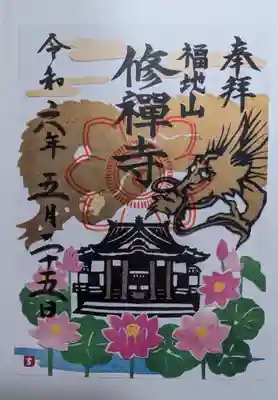 奉拝
福地山
修禪寺
令和六年五月二十五日